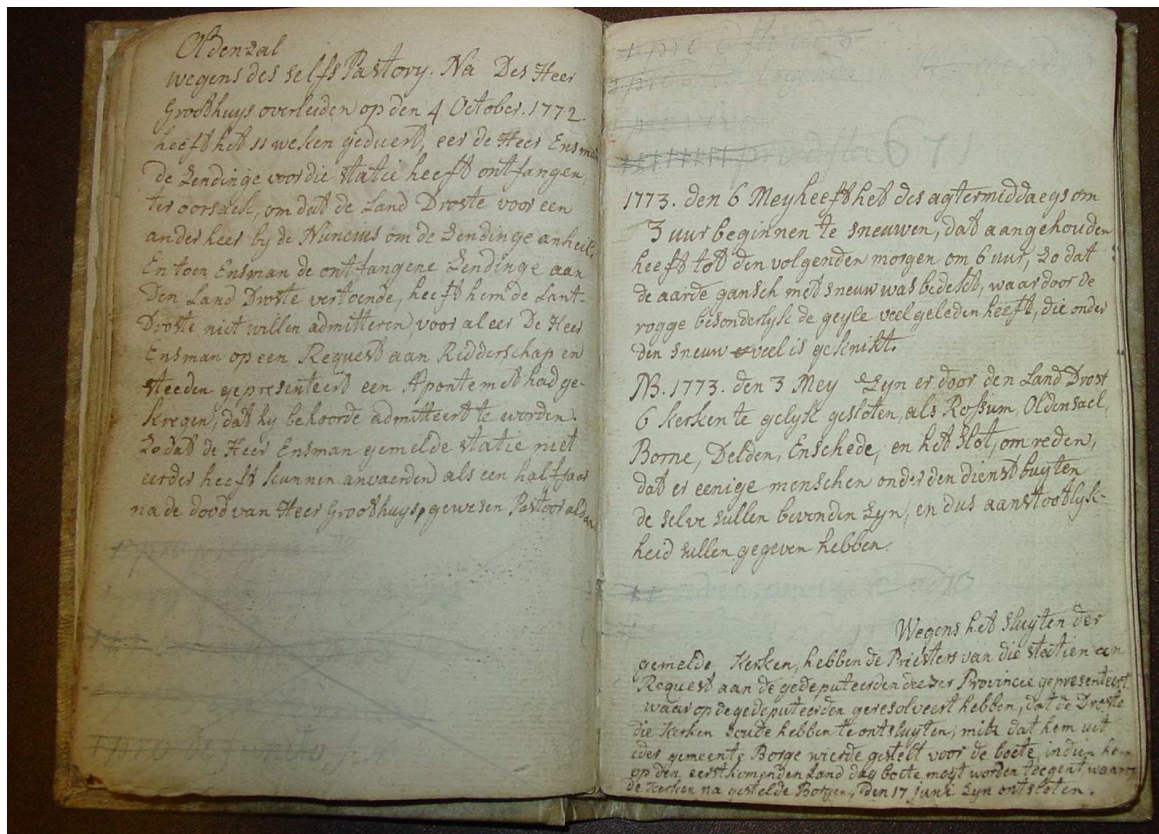 Oldenzal
wegens des selfs Pastory. Na Des Heer
Groothuys overleiden op den 4 October. 1772
heeft het 11 weken geduert, eer de Heer Ensman
de Zendinge voor die statie heeft ontfangen,
ter oorsaek, om dat de Land Droste voor een
ander heer by de Nuncius om de Zendinge anheilt.
En toen Ensman de ontfangene Zendinge aan
den Land Droste vertoende, heeft hem de Lant-
Droste niet willen admitteren, voor al eer De Heer
Ensman op een Request aan Ridderschap en
steeden gepresenteert een Apontement had ge-
kregen, dat hy behoorde admitteert te worden.
Zo dat de Heer Ensman gemelde statie niet
eerder heeft kunnen anvaerden als een half jaer
na de dood van Heer Groothuys, gewesen Pastoor
671
1773. den 6 Mey heeft het des agtermiddaegs om
3 uur beginnen te sneuwen, dat aangehouden
heeft tot den volgenden morgen om 6 uur, zo dat
de aarde gansch met sneuw was bedekt, waar door de
rogge besonderlyk de geyle veel geleden heeft, die onder
den sneuw veel is geknikt.
NB. 1773. den 3 Mey Zyn er door den Land Drost
6 kerken te gelyk gesloten, als Rossum, Oldensael,
Borne, Delden, Enschede, en het Slot, om reden,
dat er eenige menschen onder den dienst buyten
de selve sullen bevonden Zyn, en dus aanstootlyk-
heid sullen gegeven hebben.
Wegens het sluyten der
gemelde Kerken, hebben de Priesters van die statien een
Request aan de gedeputeerden deezer Provincie gepresenteert
waar op de gedeputeerden geresolveert hebben, dat de Droste
die Kerken soude hebben te ontsluyten, mits dat hem uit
ider gemeente Borge wierde gestelt voor de boete, indien hem
op den eerstkomenden Land dag boete moyt worden
de Kerken na gestelde Borgen, den 17 Juni Zyn ontsloten.